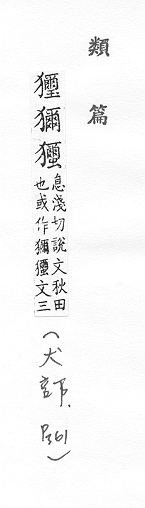 類篇
獮
息淺切說文秋田
也或作獮文三
（犬部、P361）